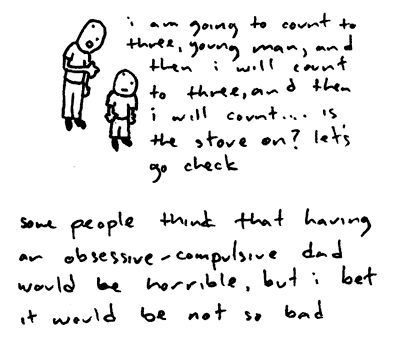 i am going to count to
three, young man, and
then i will count
to three, and then
i will count... is
the stove on? let's
go check
some people think that having
an obsessive-compulsive dad
would be horrible, but i bet
it would be not so bad